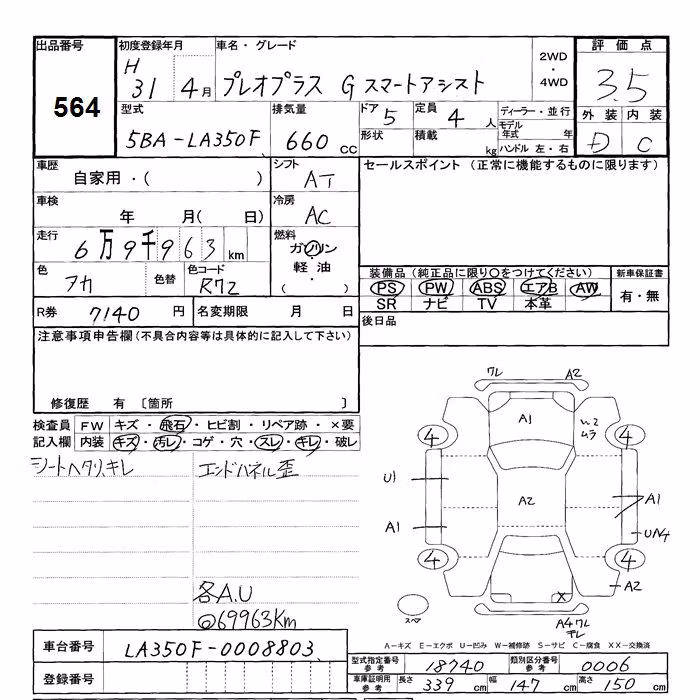 出品番号
564
初度登録年月
H 31 4月
車名・グレード
プレオプラス G スマートアシスト
2WD
・
4WD
評価点
3.5
外装 内装
D C
型式
5BA-LA350F
排気量
660 cc
ドア 5
形状
定員 4 人
積載 kg
ディーラー・並行
モデル年式 年
ハンドル 左・右
車歴
自家用・( )
シフト
AT
セールスポイント (正常に機能するものに限ります)
車検
年 月( 日)
冷房
AC
走行
6万9千963 km
燃料
ガソリン
軽油
( ・ )
色
アカ
色替
色コード
R72
装備品 (純正品に限り○をつけてください)
PS PW ABS エアB AW
SR ナビ TV 本革
新車保証書
有・無
R券 7140 円
名変期限 月 日
後日品
注意事項申告欄 (不具合内容等は具体的に記入して下さい)
修復歴 有 〔箇所 〕
検査員記入欄
FW キズ・飛石・ヒビ割・リペア跡・×要
内装 キズ・汚レ・コゲ・穴・スレ・キレ・破レ
シートヘタリ、キレ
エンドパネル歪
各A.U
@69963Km
ワレ A2
A1
ムラ
4 4
U1
A2
A1
A1
4 4
A2
X
スペア
A4ワレ
A－キズ E－エクボ U－凹み W－補修跡 S－サビ C－腐食 XX－交換済
車台番号
LA350F-0008803
登録番号
型式指定番号 参考 18740
類別区分番号 参考 0006
車庫証明用 参考 長さ 339 cm 幅 147 cm 高さ 150 cm